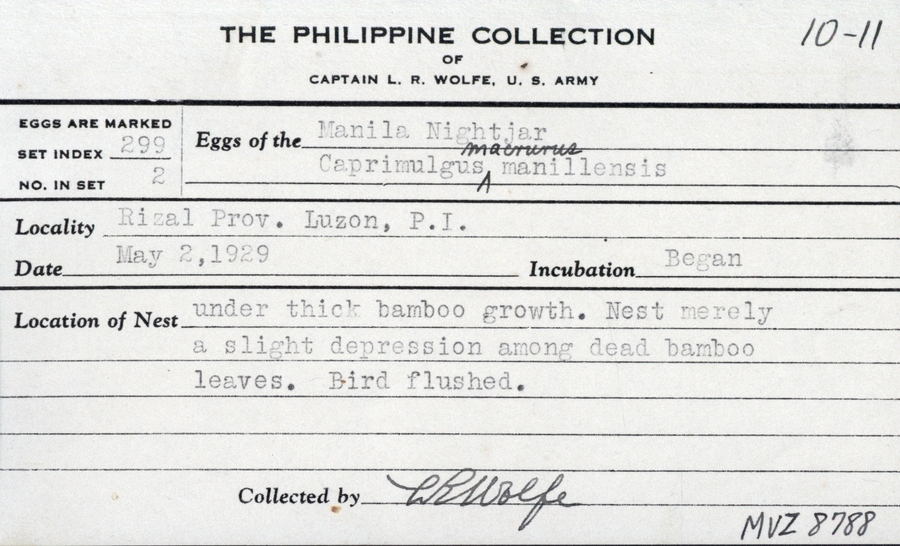 THE PHILIPPINE COLLECTION
10-11
OF
CAPTAIN L. R. WOLFE, U. S. ARMY
EGGS ARE MARKED
SET INDEX 299
NO. IN SET 2
Eggs of the Manila Nightjar
macrurus
Caprimulgus manillensis
Locality Rizal Prov. Luzon, P.I.
Date May 2,1929 Incubation Began
Location of Nest under thick bamboo growth. Nest merely
a slight depression among dead bamboo
leaves. Bird flushed.
Collected by LRWolfe
MVZ 8788